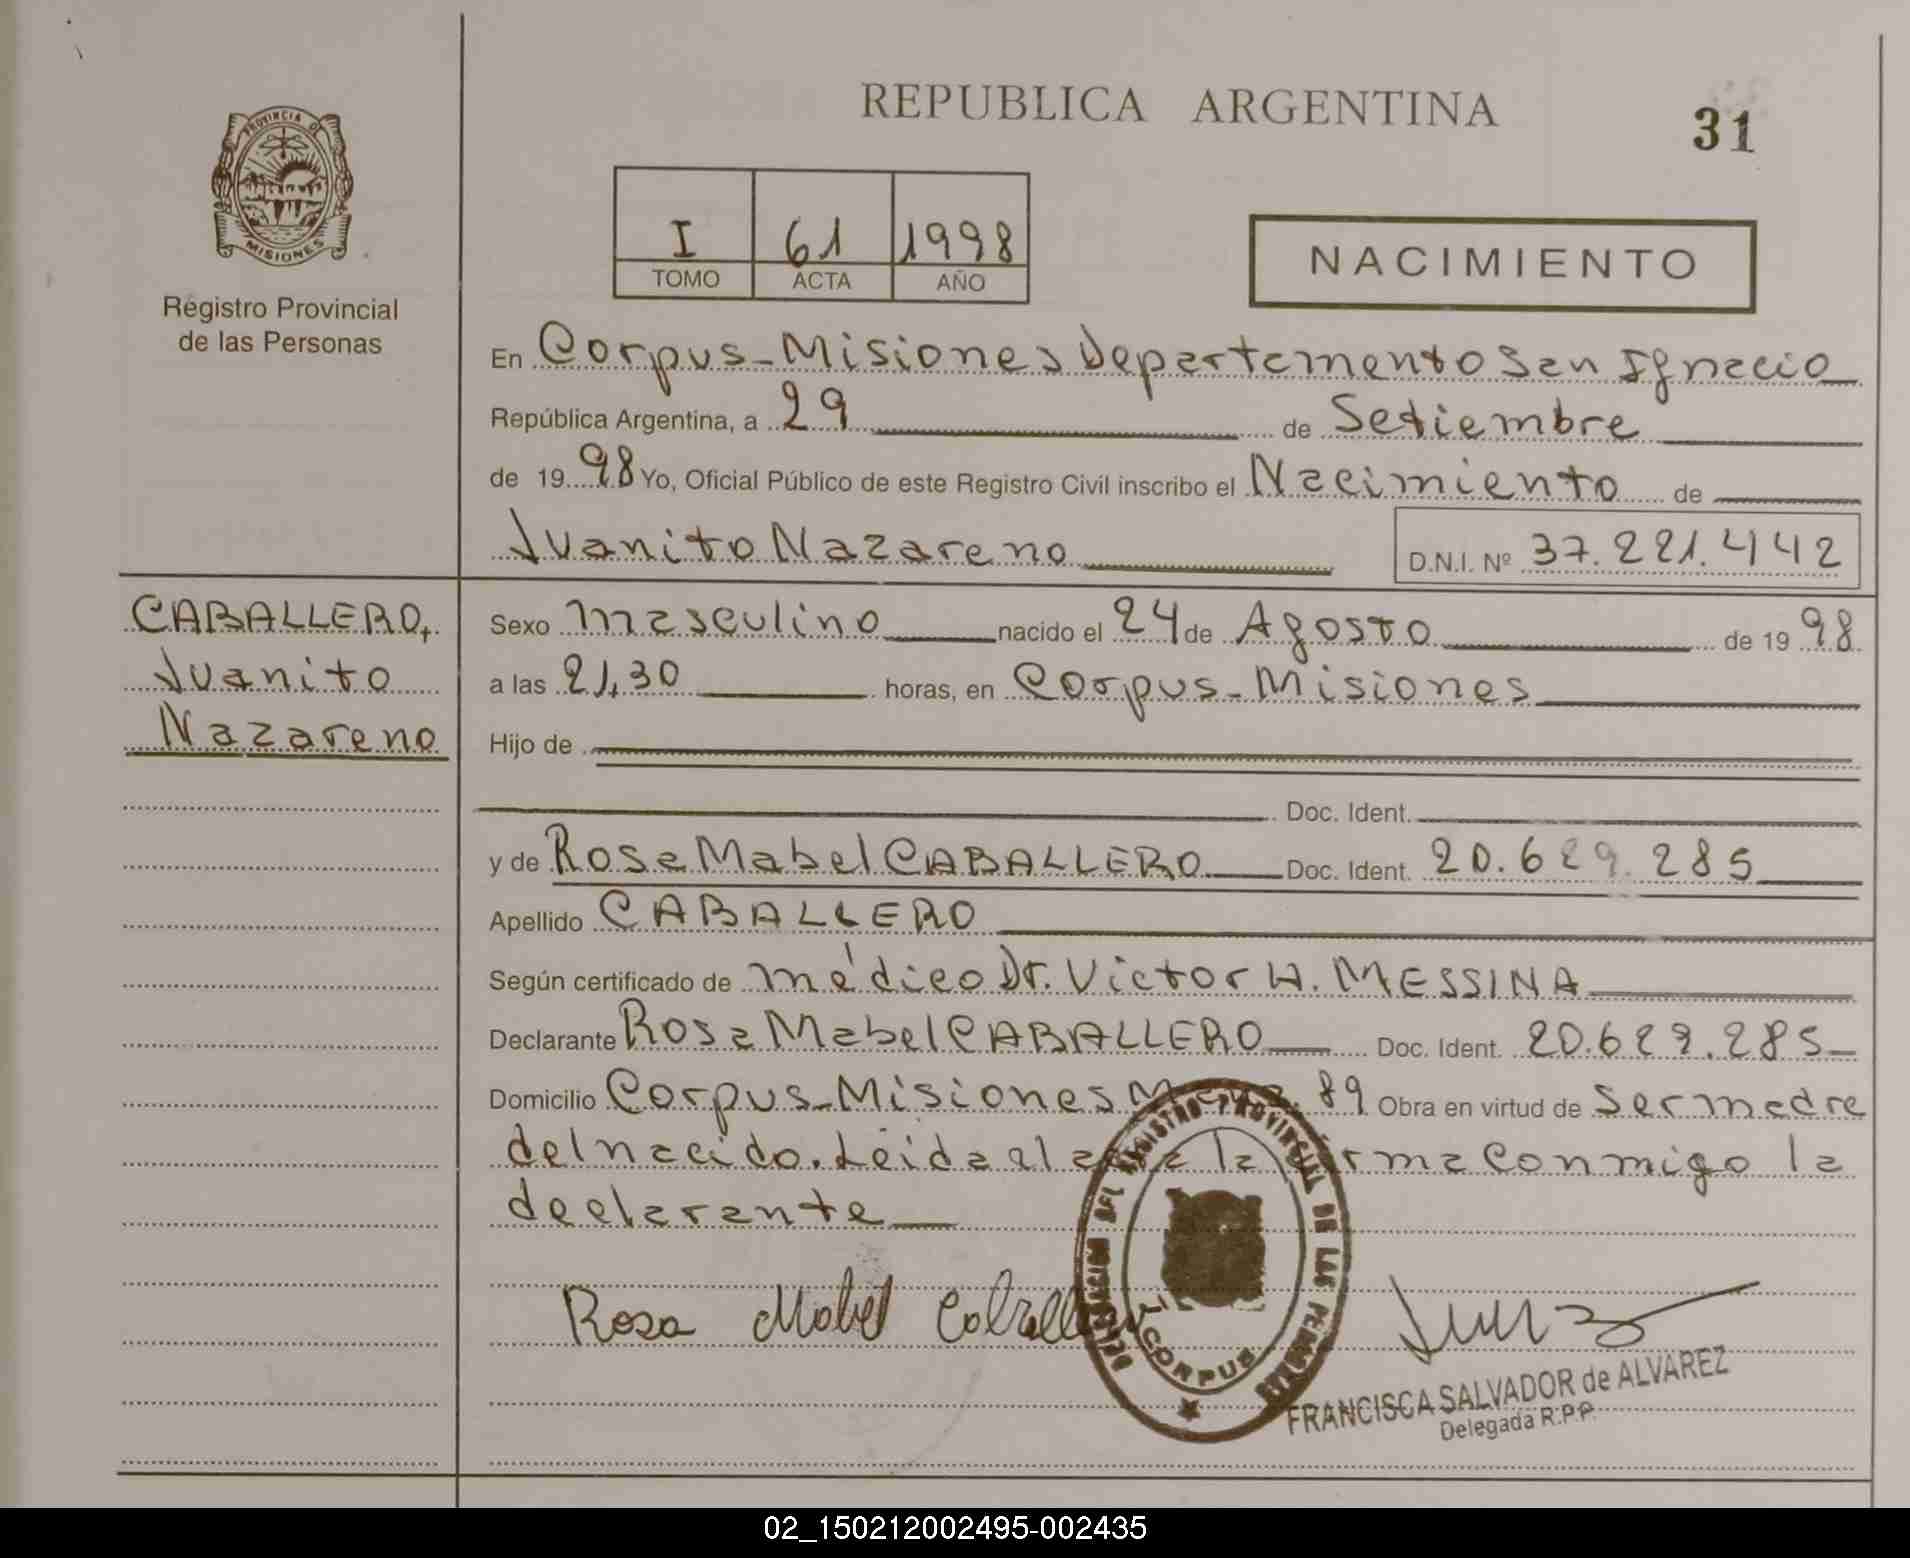 REPUBLICA ARGENTINA
31
PROVINCIA DE
MISIONES
Registro Provincial
de las Personas
I 61 1998
TOMO ACTA AÑO
NACIMIENTO
En Corpus-Misiones Departamento San Ignacio
República Argentina, a 29 de Setiembre
de 1998 Yo, Oficial Público de este Registro Civil inscribo el Nacimiento de
Juanito Nazareno D.N.I. Nº 37.221.442
CABALLERO,
Juanito
Nazareno
Sexo masculino nacido el 24 de Agosto de 1998.
a las 21,30 horas, en Corpus-Misiones
Hijo de
Doc. Ident.
y de Rosa Mabel CABALLERO Doc. Ident. 20.629.285
Apellido CABALLERO
Según certificado de médico Dr. Victor H. MESSINA
Declarante Rosa Mabel CABALLERO Doc. Ident. 20.629.285
Domicilio Corpus-Misiones 89 Obra en virtud de ser madre
del nacido. Leida el acta la firma conmigo la
declarante
Rosa Mabel Caballero
DELEGACION DEL REGISTRO PROVINCIAL DE LAS PERSONAS
CORPUS
FRANCISCA SALVADOR de ALVAREZ
Delegada R.P.P.
02_150212002495-002435